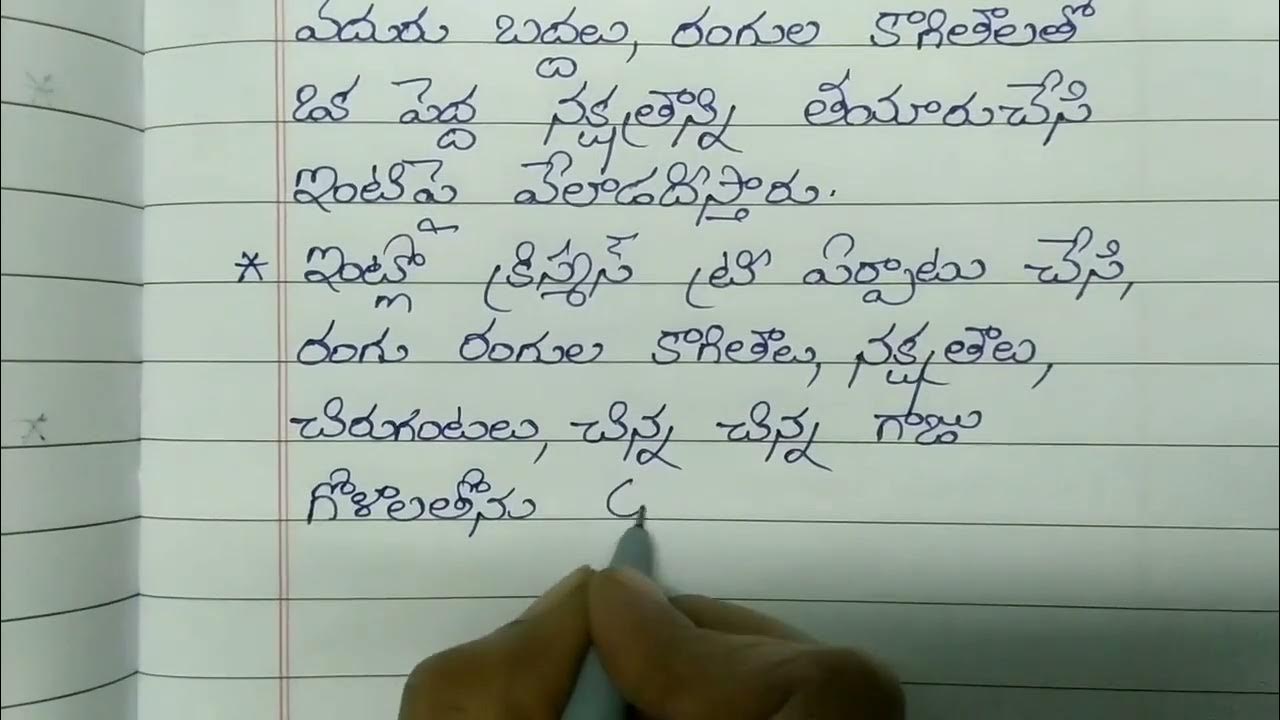 వెదురు బద్దలు, రంగుల కాగితాలతో
ఒక పెద్ద నక్షత్రాన్ని తయారుచేసి
ఇంటిపై వేలాడదీస్తారు.
* ఇంట్లో క్రిస్మస్ ట్రీ ఏర్పాటు చేసి,
రంగు రంగుల కాగితాలు, నక్షత్రాలు,
చిరుగంటలు, చిన్న చిన్న గాజు
గోళాలతోను